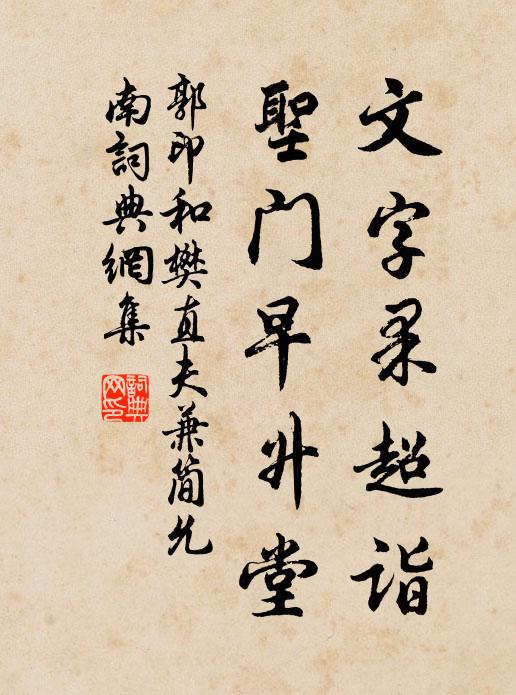 文字累超詣
聖門早升堂
郭印和樊直夫兼簡允
南詞典網集
詞典
网印